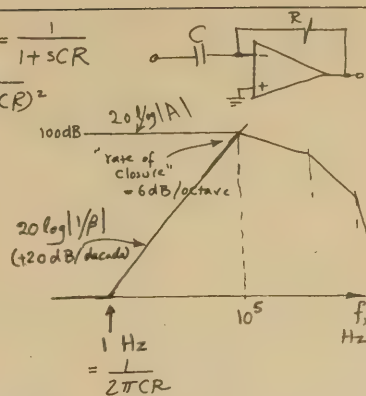 = 1 / 1 + sCR
CR)²
C
R
−
+
100dB
20 log|A|
"rate of
closure"
= 6 dB/octave
20 log|1/β|
(+20 dB/decade)
1 Hz
= 1 / 2πCR
10⁵
f,
Hz